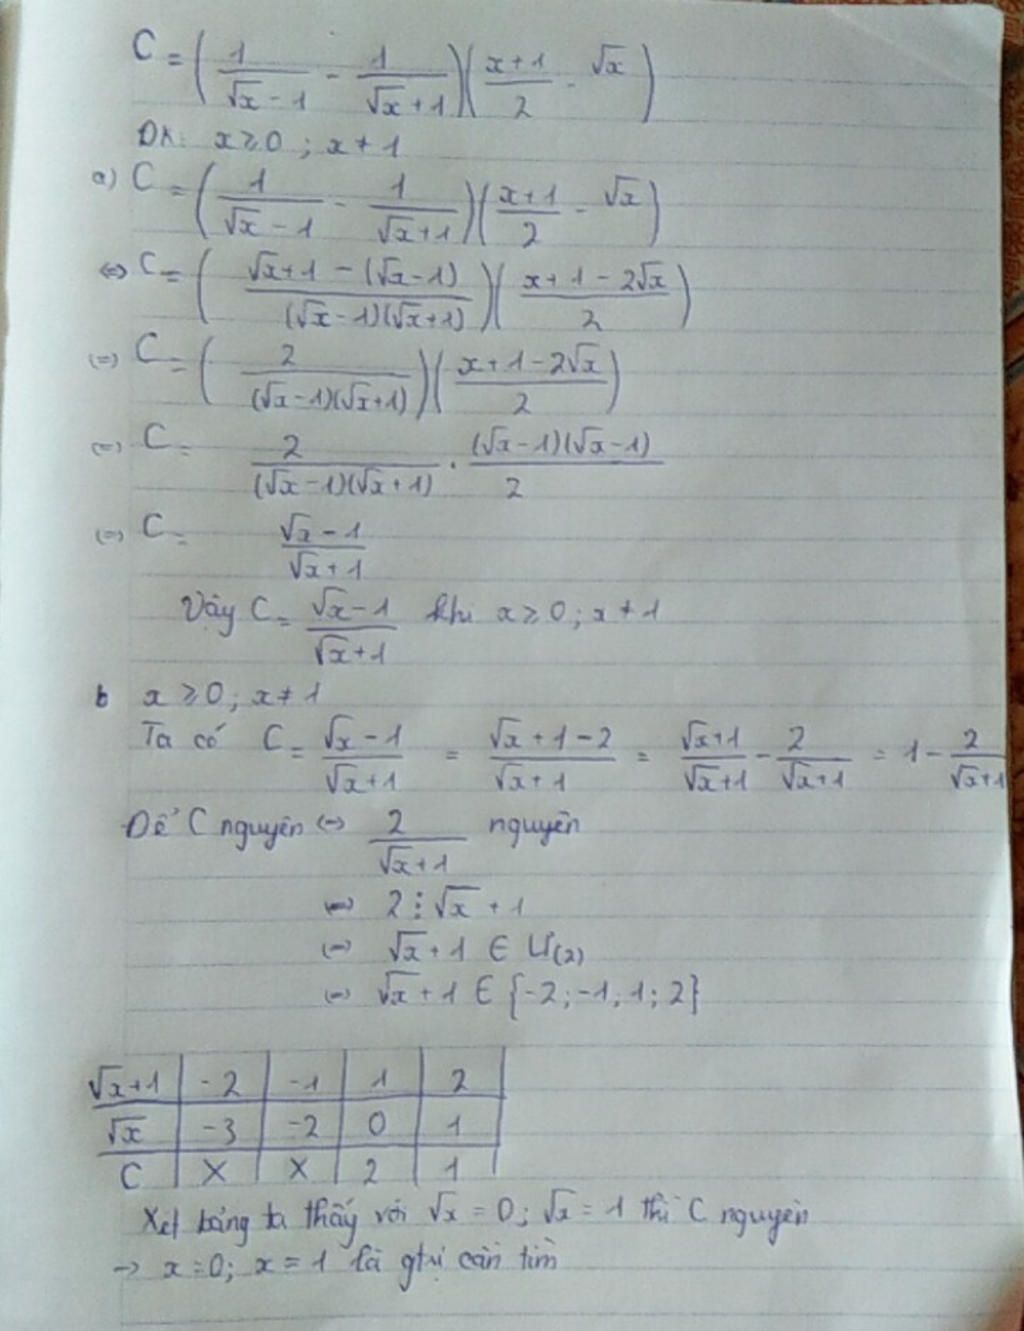 C = (1/(√x - 1) - 1/(√x + 1))((x + 1)/2 - √x)
ĐK: x ≥ 0 ; x ≠ 1
a) C = (1/(√x - 1) - 1/(√x + 1))((x + 1)/2 - √x)
(=) C = ((√x + 1 - (√x - 1))/((√x - 1)(√x + 1)))((x + 1 - 2√x)/2)
(=) C = (2/((√x - 1)(√x + 1)))((x + 1 - 2√x)/2)
(=) C = 2/((√x - 1)(√x + 1)) . ((√x - 1)(√x - 1))/2
(=) C = (√x - 1)/(√x + 1)
Vậy C = (√x - 1)/(√x + 1) khi x ≥ 0 ; x ≠ 1
b x ≥ 0 ; x ≠ 1
Ta có C = (√x - 1)/(√x + 1) = (√x + 1 - 2)/(√x + 1) = (√x + 1)/(√x + 1) - 2/(√x + 1) = 1 - 2/(√x + 1)
Để C nguyên (=) 2/(√x + 1) nguyên
(=) 2 ⋮ √x + 1
(=) √x + 1 ∈ Ư(2)
(=) √x + 1 ∈ {-2 ; -1 ; 1 ; 2}
√x + 1 | -2 | -1 | 1 | 2
√x | -3 | -2 | 0 | 1
C | X | X | 2 | 1
Xét bảng ta thấy với √x = 0 ; √x = 1 thì C nguyên
→ x = 0 ; x = 1 là gtrị cần tìm